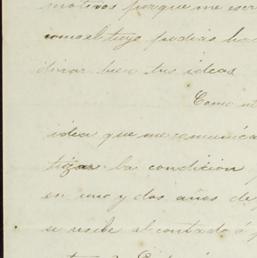 motivos porque me escri
como el tuyo podrás hac
dicar bien tus ideas
Como u
idea que me comunica
tizar la condición
en uno y dos años de
se recibe al contado ó